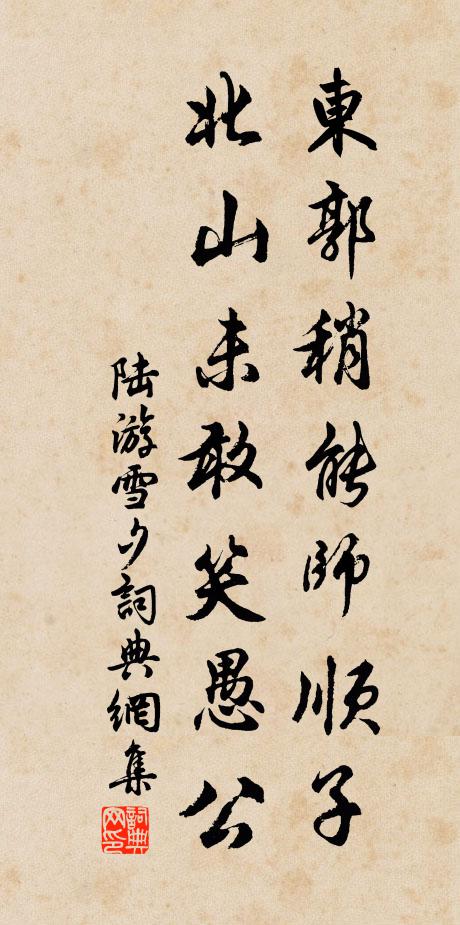 東郭稍能師順子
北山未敢笑愚公
陆游雪夕詞典網集
詞典網印